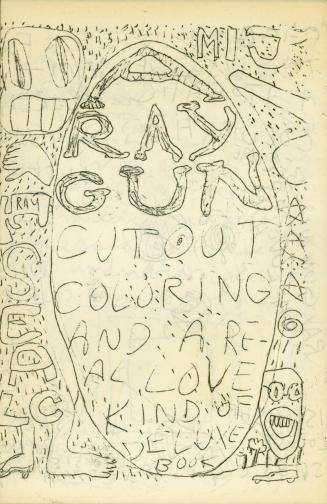 A
RAY
GUN
CUTOUT
COLORING
AND A RE-
AL LOVE
KIND OF
DELUXE
BOOK
MI
RAY